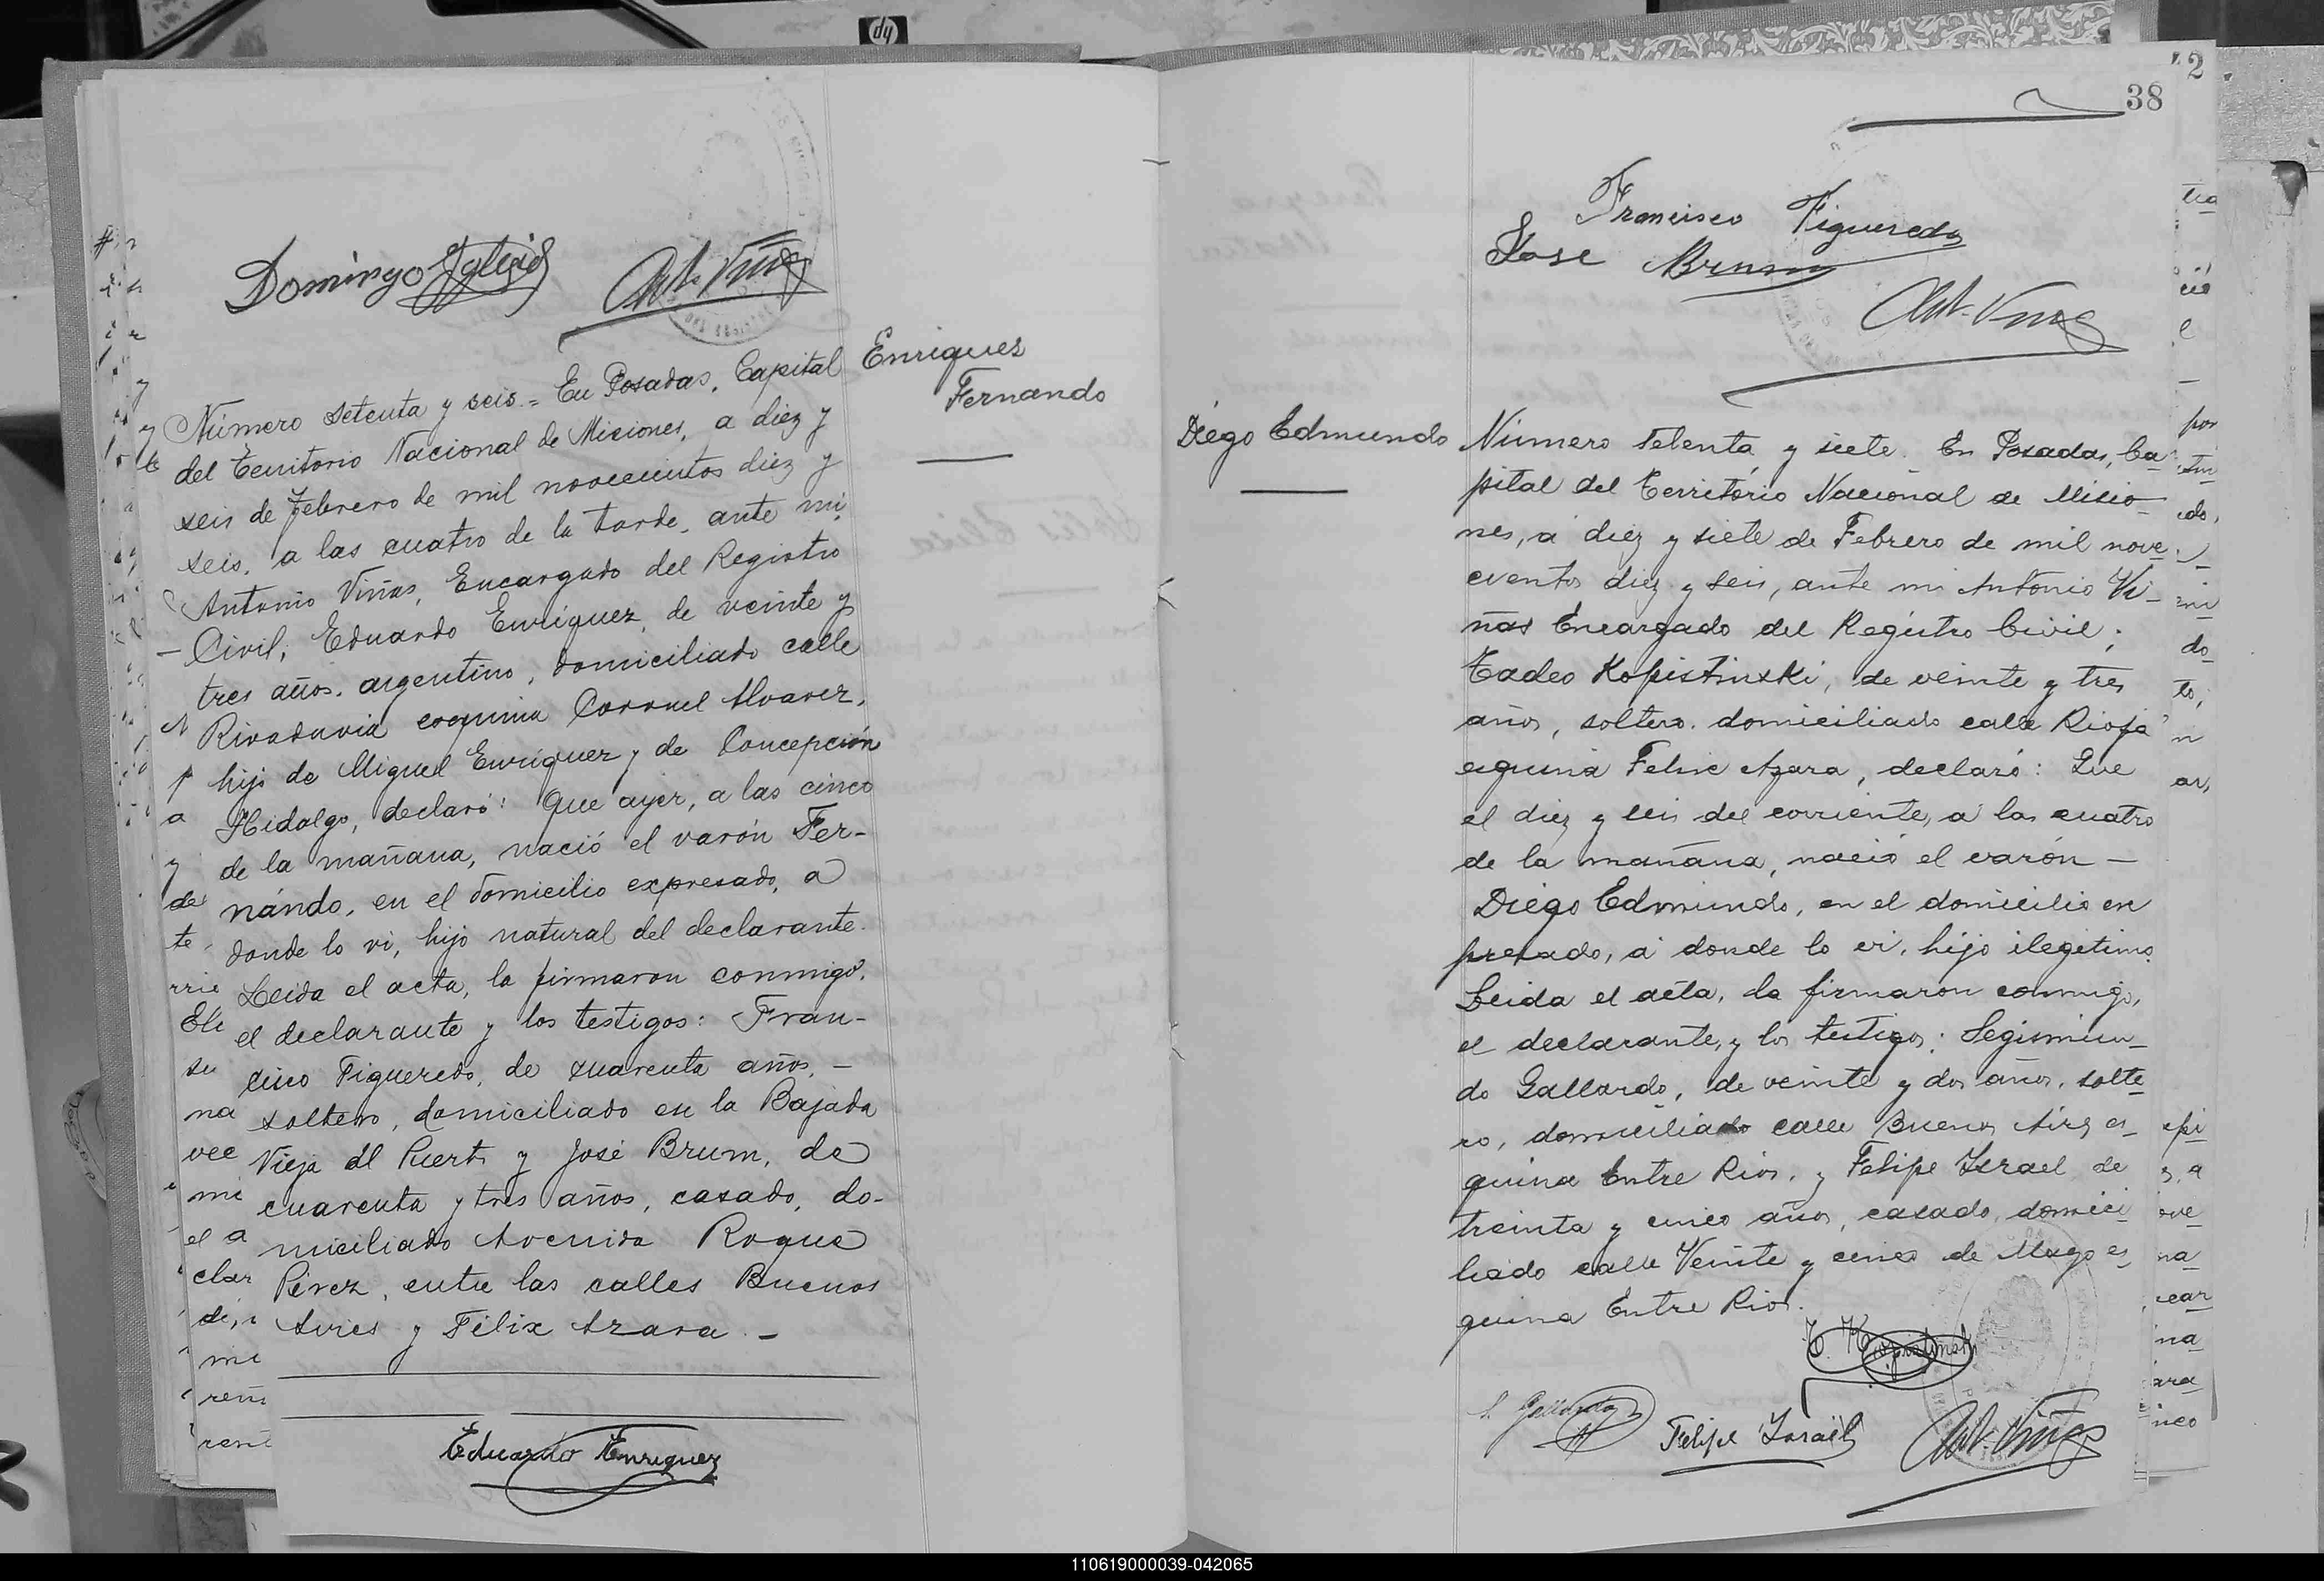 Domingo Iglesias
Ant. Viñas
Enriques
Fernando
Número setenta y seis = En Posadas, Capital
del Territorio Nacional de Misiones, a diez y
seis de Febrero de mil novecientos diez y
seis, a las cuatro de la tarde, ante mi,
Antonio Viñas, Encargado del Registro
Civil, Eduardo Enríquez, de veinte y
tres años, argentino, domiciliado calle
Rivadavia esquina Coronel Alvarez,
hijo de Miguel Enríquez y de Concepción
Hidalgo, declaró: Que ayer, a las cinco
de la mañana, nació el varón Fer-
nándo, en el domicilio expresado, a
donde lo vi, hijo natural del declarante.
Leida el acta, la firmaron conmigo,
el declarante y los testigos: Fran-
cisco Figueredo, de cuarenta años, -
soltero, domiciliado en la Bajada
Vieja del Puerto y José Brum, de
cuarenta y tres años, casado, do-
miciliado Avenida Roque
Pérez, entre las calles Buenos
Aires y Félix Azara. -
Eduardo Enriquez
38
Francisco Figueredo
Jose Brum
Ant. Viñas
Diego Edmundo
Número setenta y siete. En Posadas, Ca-
pital del Territorio Nacional de Misio-
nes, a diez y siete de Febrero de mil nove-
cientos diez y seis, ante mi Antonio Vi-
ñas Encargado del Registro Civil;
Tadeo Kopistinski, de veinte y tres
años, soltero, domiciliado calle Rioja
esquina Felix Azara, declaró: Que
el diez y seis del corriente, a las cuatro
de la mañana, nació el varón -
Diego Edmundo, en el domicilio ex
presado, a donde lo vi, hijo ilegitimo.
Leida el acta, la firmaron conmigo,
el declarante, y los testigos: Segismun-
do Gallardo, de veinte y dos años, solte-
ro, domiciliado calle Buenos Aires es-
quina Entre Rios, y Felipe Israel, de
treinta y cinco años, casado, domici-
liado calle Veinte y cinco de Mayo es-
quina Entre Rios.
T. Kopistinski
S. Gallardo
Felipe Israël
Ant. Viñas
110619000039-042065